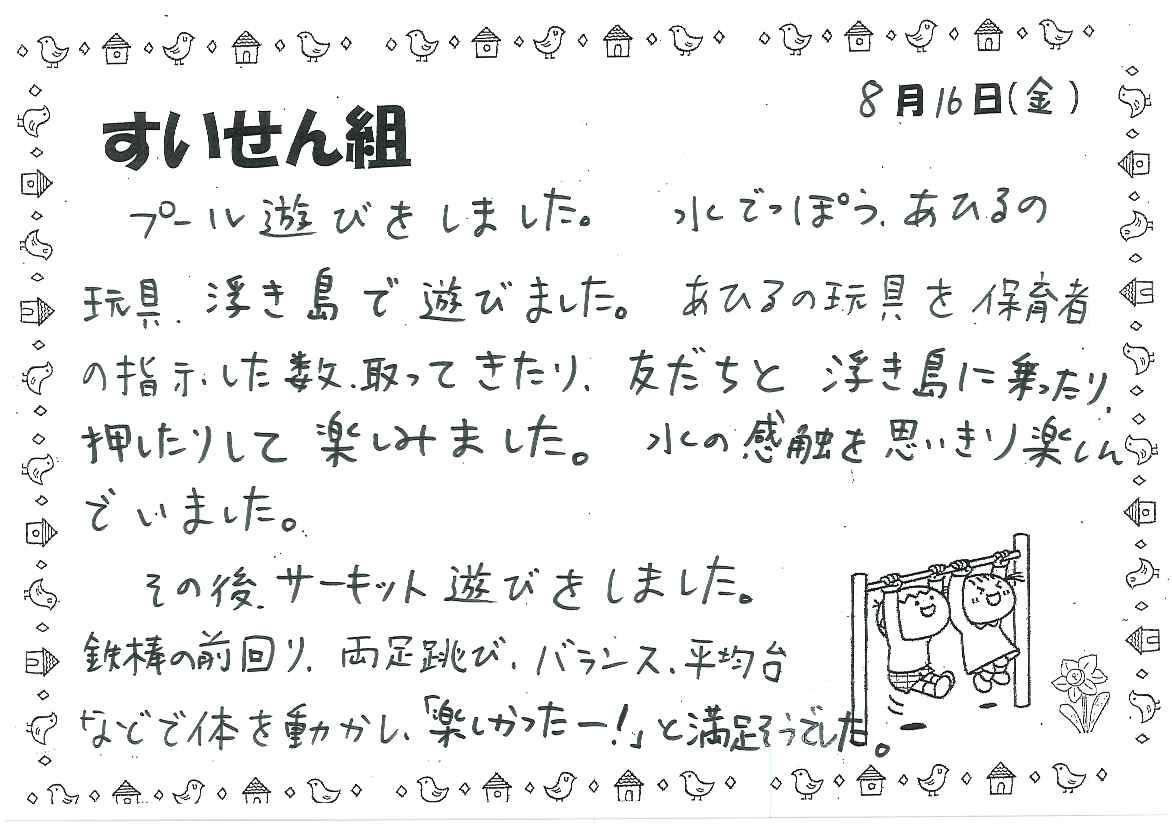 8月16日(金)
すいせん組
プール遊びをしました。 水でっぽう、あひるの
玩具、浮き島で遊びました。 あひるの玩具を保育者
の指示した数、取ってきたり、友だちと浮き島に乗ったり、
押したりして楽しみました。 水の感触を思いきり楽しん
でいました。
その後、サーキット遊びをしました。
鉄棒の前回り、両足跳び、バランス、平均台
などで体を動かし、「楽しかったー!」と満足そうでした。